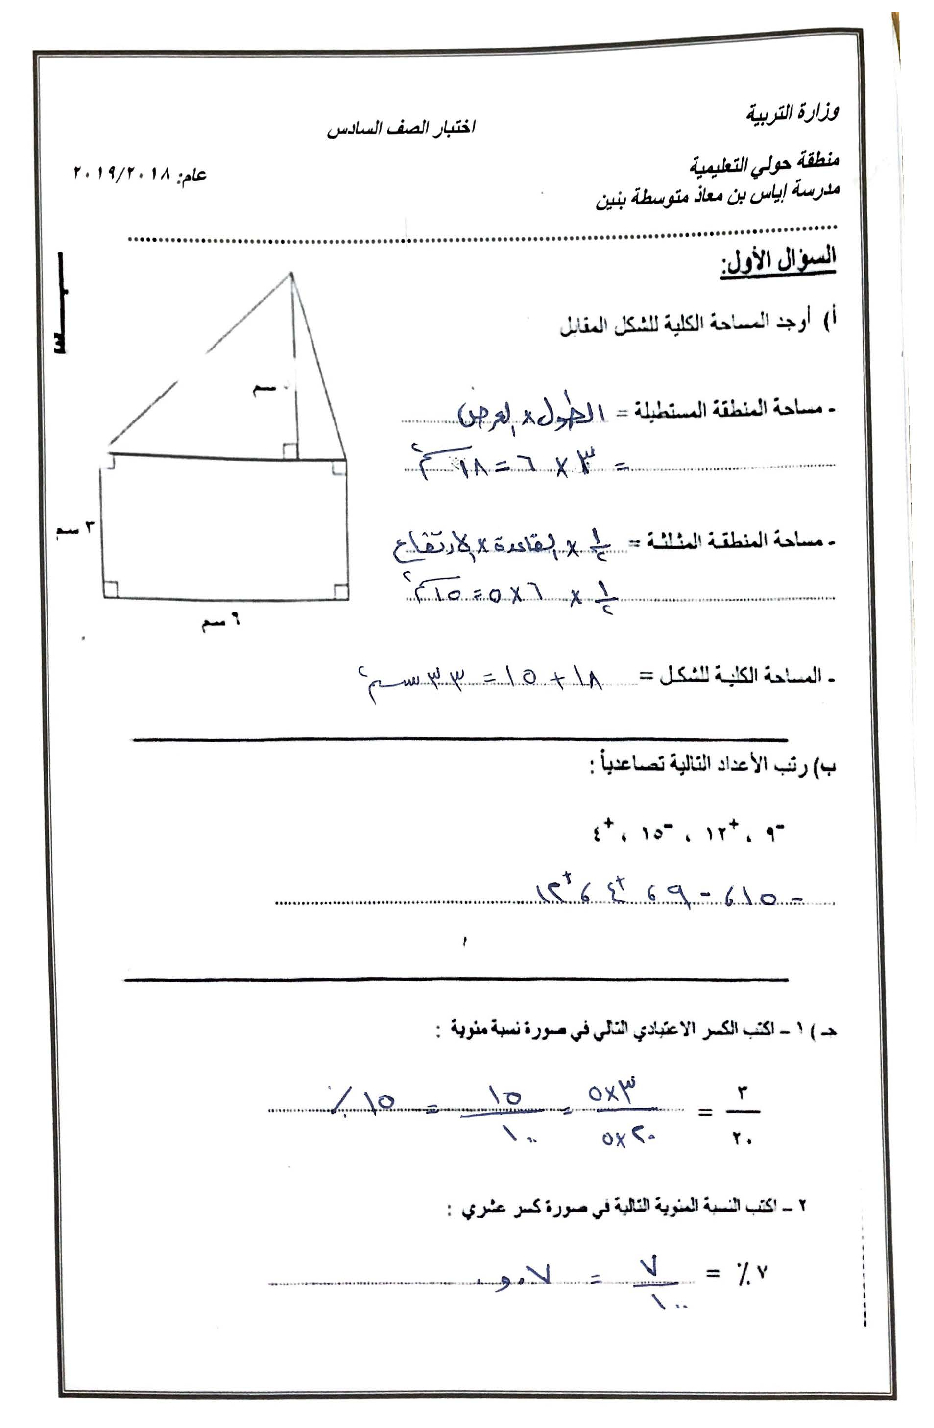 وزارة التربية
اختبار الصف السادس
منطقة حولي التعليمية
عام: ٢٠١٩/٢٠١٨
مدرسة إياس بن معاذ متوسطة بنين
السؤال الأول:
أ) أوجد المساحة الكلية للشكل المقابل
سم
٣ سم
٦ سم
- مساحة المنطقة المستطيلة = الطول × العرض
= ٣ × ٦ = ١٨ سم٢
- مساحة المنطقة المثلثة = ١/٢ × القاعدة × الارتفاع
١/٢ × ٦ × ٥ = ١٥ سم٢
- المساحة الكلية للشكل = ١٨ + ١٥ = ٣٣ سم٢
ب) رتب الأعداد التالية تصاعدياً :
⁻٩ ، ⁺١٢ ، ⁻١٥ ، ⁺٤
- ١٥ ، - ٩ ، ⁺٤ ، ⁺١٢
حـ ) ١ - اكتب الكسر الاعتيادي التالي في صورة نسبة مئوية :
٣/٢٠ = ٣×٥/٢٠×٥ = ١٥/١٠٠ = ١٥ ٪
٢ - اكتب النسبة المئوية التالية في صورة كسر عشري :
٧ ٪ = ٧/١٠٠ = ٠,٠٧